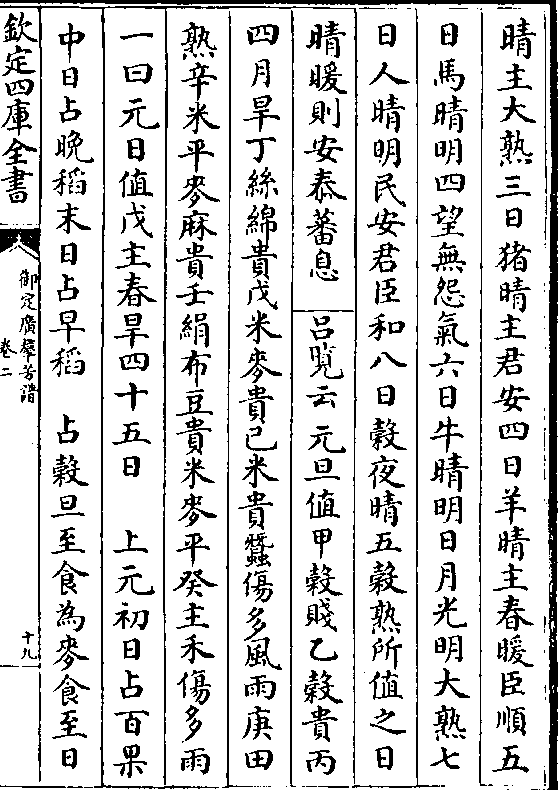 晴主大熟三日猪晴主君安四日羊晴主春暖臣順五
日馬晴明四望無怨氣六日牛晴明日月光明大熟七
日人晴明民安君臣和八日榖夜晴五榖熟所值之日
晴暖則安泰蕃息　吕覧云元旦值甲榖賤乙榖貴丙
四月旱丁絲綿貴戊米麥貴己米貴蠶傷多風雨庚田
熟辛米平麥麻貴壬絹布豆貴米麥平癸主禾傷多雨
一曰元日值戊主春旱四十五日　上元初日占百果
中日占晚稻末日占早稻　占榖旦至食為麥食至日
欽定四庫全書
御定廣羣芳譜
卷二
十九